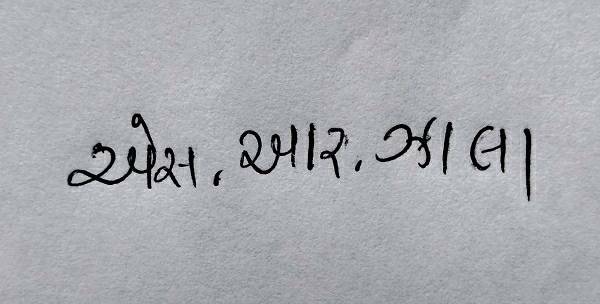 એસ. આર. ઝાલા